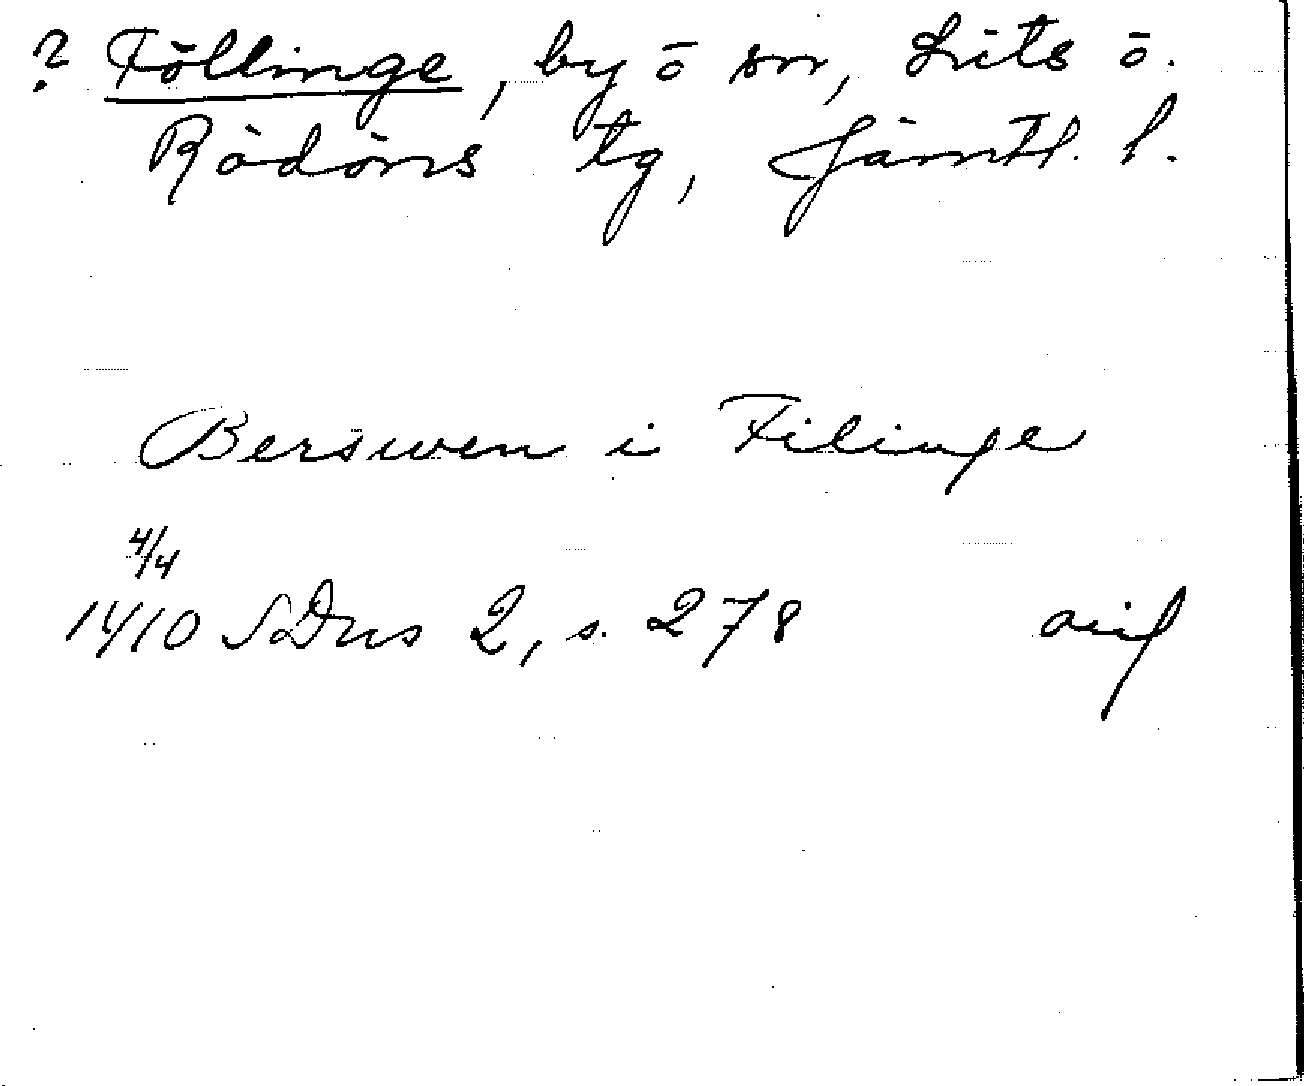 ? Föllinge, by o sn, Lits o.
Rödöns tg, Jämtl. l.
Berswen i Filinge
4/4
1410 SDns 2, s. 278